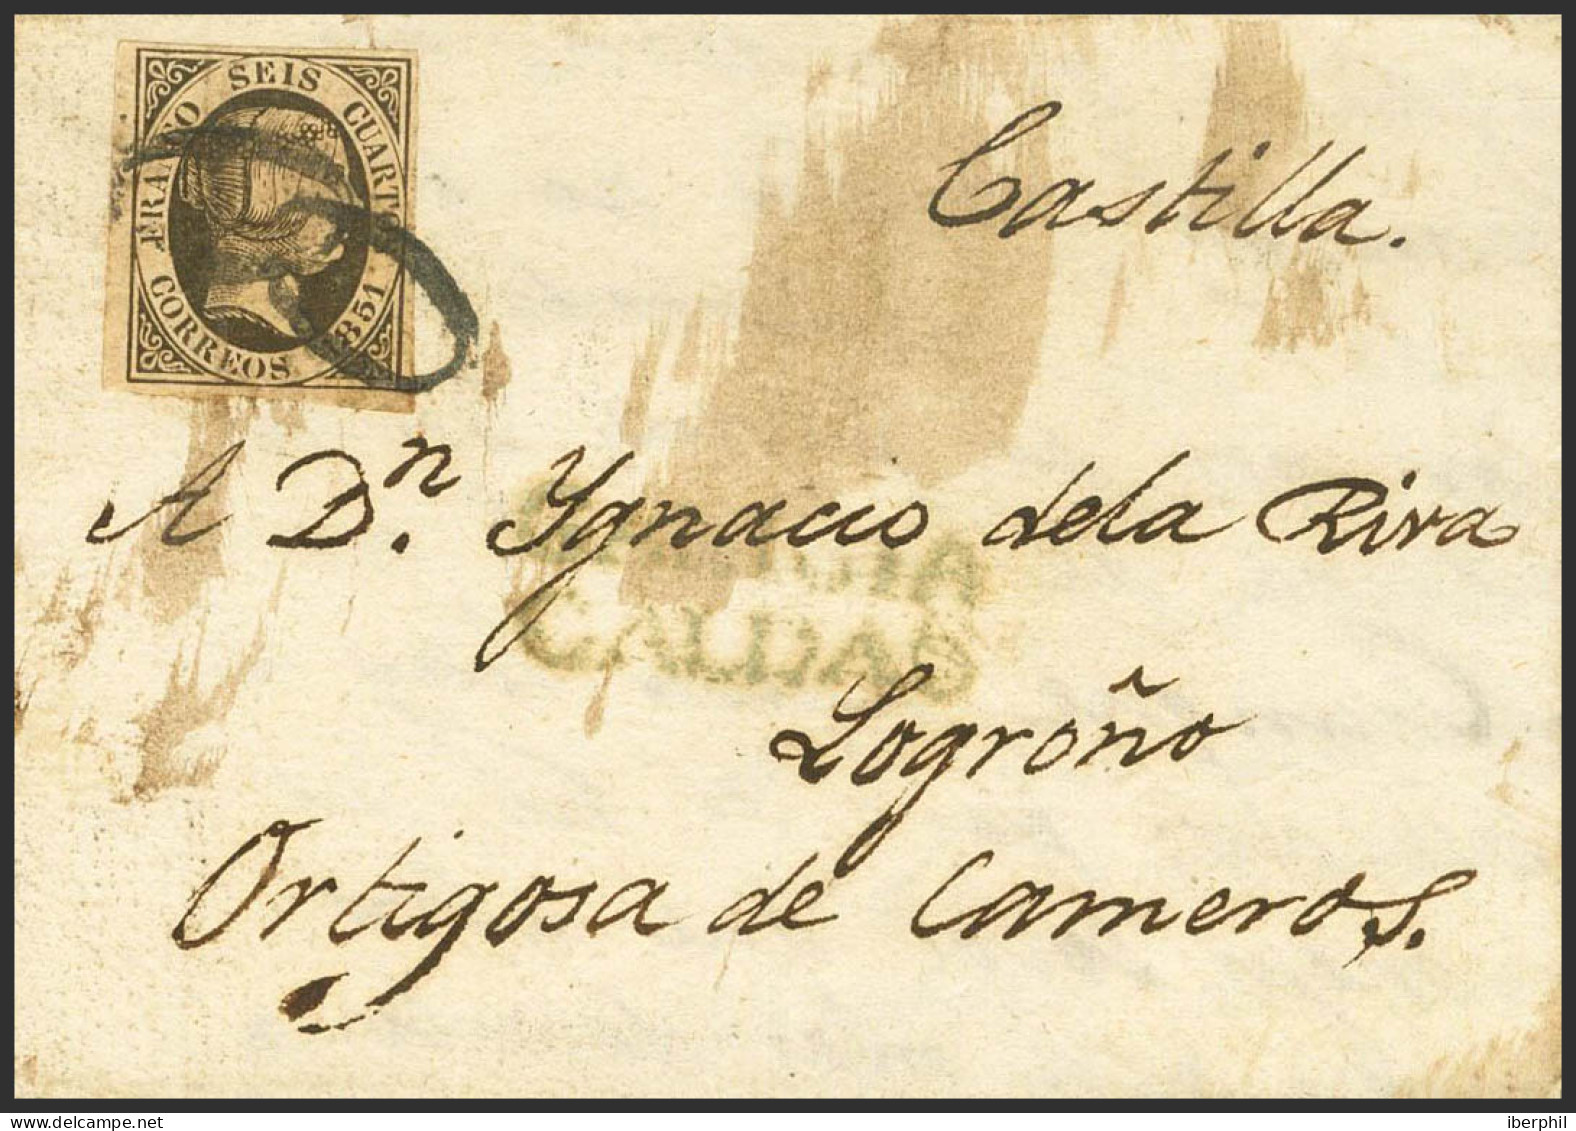 FRANCO SEIS CUARTOS
CORREOS 1851
Castilla.
A Dn. Ygnacio dela Riva
Logroño
Ortigosa de Cameros.
delcampe.net
iberphil